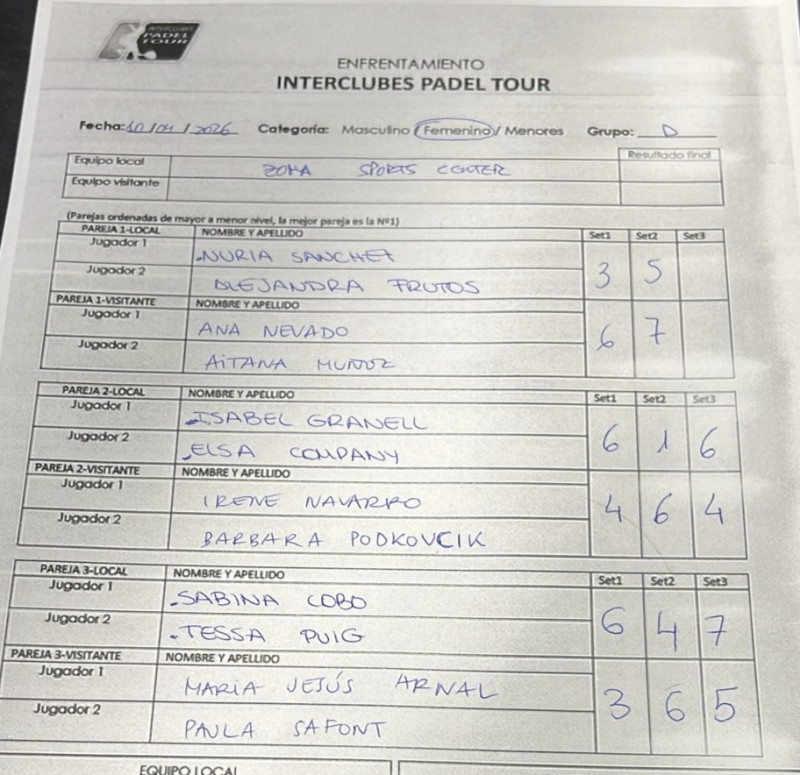 INTERCLUBES
PADEL
TOUR
ENFRENTAMIENTO
INTERCLUBES PADEL TOUR
Fecha: 10/04/2026 Categoría: Masculino / Femenino / Menores Grupo: D
Equipo local ZONA SPORTS CENTER Resultado final
Equipo visitante
(Parejas ordenadas de mayor a menor nivel, la mejor pareja es la Nº1)
PAREJA 1-LOCAL NOMBRE Y APELLIDO Set1 Set2 Set3
Jugador 1 NURIA SANCHEZ
Jugador 2 ALEJANDRA FRUTOS
3 5
PAREJA 1-VISITANTE NOMBRE Y APELLIDO
Jugador 1 ANA NEVADO
Jugador 2 AITANA MUÑOZ
6 7
PAREJA 2-LOCAL NOMBRE Y APELLIDO Set1 Set2 Set3
Jugador 1 ISABEL GRANELL
Jugador 2 ELSA COMPANY
6 1 6
PAREJA 2-VISITANTE NOMBRE Y APELLIDO
Jugador 1 IRENE NAVARRO
Jugador 2 BARBARA PODKOVCIK
4 6 4
PAREJA 3-LOCAL NOMBRE Y APELLIDO Set1 Set2 Set3
Jugador 1 SABINA COBO
Jugador 2 TESSA PUIG
6 4 7
PAREJA 3-VISITANTE NOMBRE Y APELLIDO
Jugador 1 MARIA JESÚS ARNAL
Jugador 2 PAULA SAFONT
3 6 5
EQUIPO LOCAL